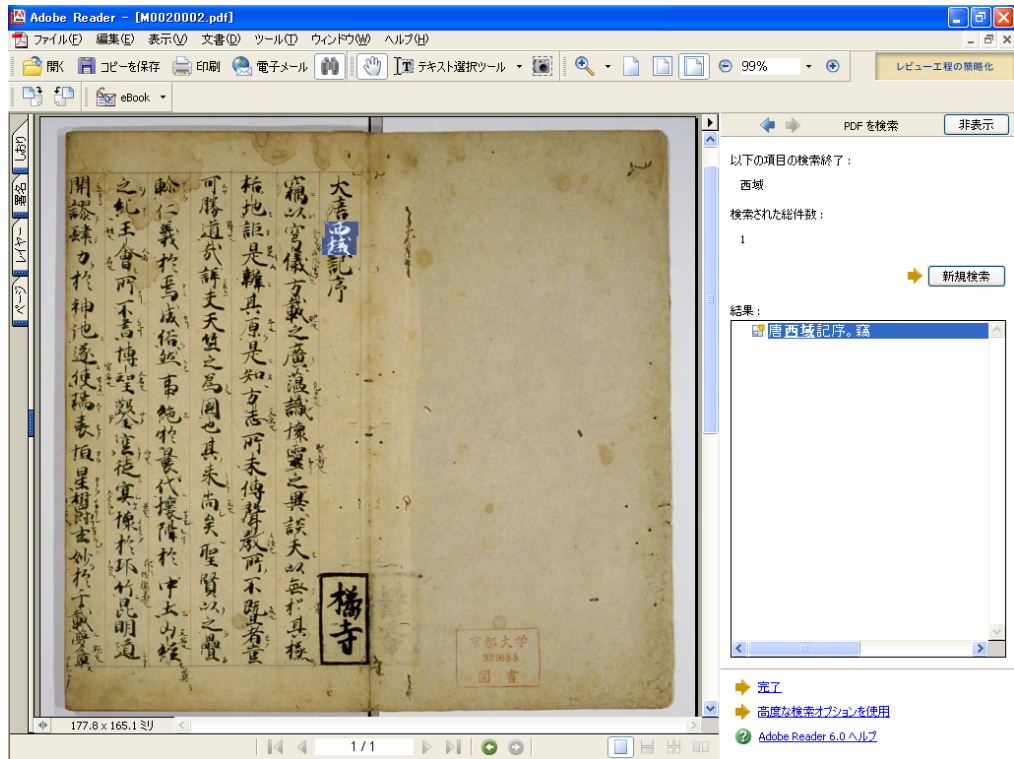 Adobe Reader - [M0020002.pdf]
ファイル(F) 編集(E) 表示(V) 文書(D) ツール(T) ウィンドウ(W) ヘルプ(H)
開く コピーを保存 印刷 電子メール テキスト選択ツール 99% レビュー工程の簡略化
eBook
しおり
署名
レイヤー
ページ
大唐西域記序
竊以穹儀方載之廣蘊識懷靈之異談天以無其極
括地詎足辯其原是知方志所未傳聲教所不曁者豈
可勝道哉詳夫天竺之爲國也其来尚矣聖賢以之疊
軫仁義於焉成俗然事絶於曩代壤隔於中土山経
之紀王會所不書博望鑿空徒寘懷於邛竹昆明道
開謬肆力於神池遂使瑞表恒星欝玄妙於千載夢彰
橘寺
京都大学
920685
図書
177.8 x 165.1 ミリ
1 / 1
PDF を検索 非表示
以下の項目の検索終了 :
西域
検索された総件数 :
1
新規検索
結果 :
唐西域記序。竊
完了
高度な検索オプションを使用
Adobe Reader 6.0 ヘルプ